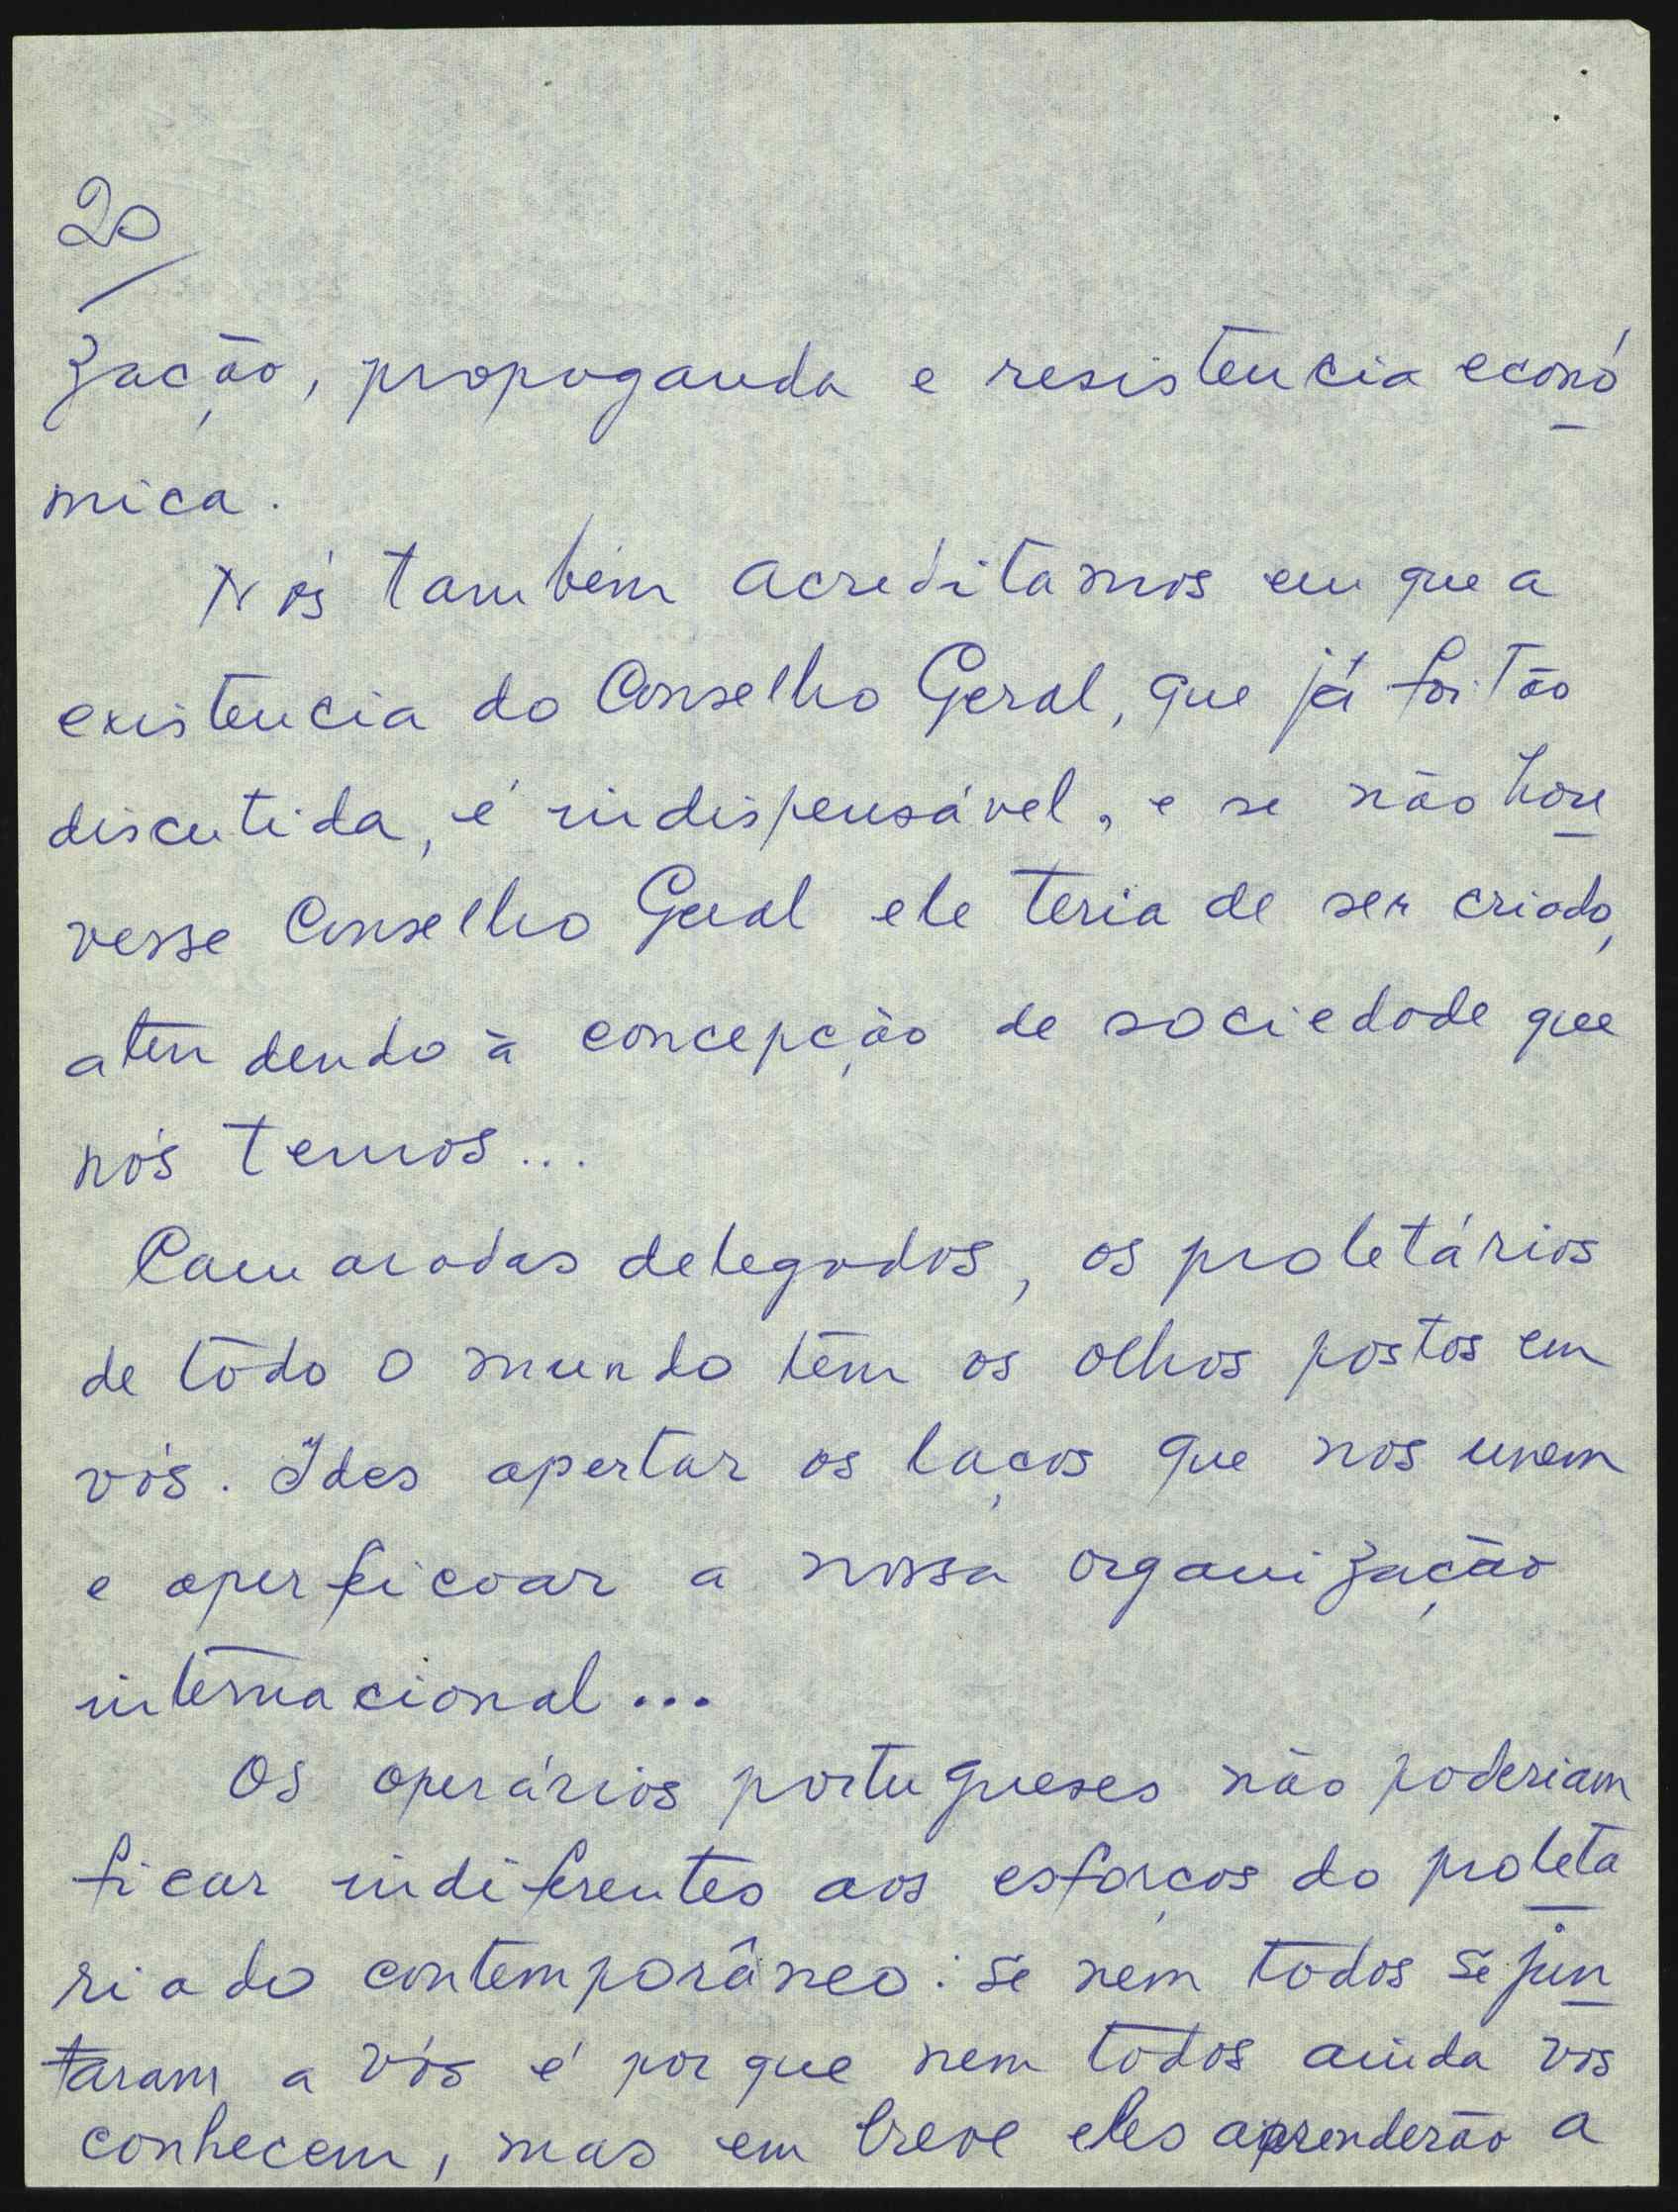 20
zação, propaganda e resistencia econó
mica.
Nós também acreditamos em que a
existencia do Conselho Geral, que já foi tão
discutida, é indispensável, e se não hou
vesse Conselho Geral ele teria de ser criado,
atendendo à concepção de sociedade que
nós temos...
Camaradas delegados, os proletários
de todo o mundo têm os olhos postos em
vós. Ides apertar os laços que nos unem
e aperfeicoar a nossa organização
internacional...
Os operários portugueses não poderiam
ficar indiferentes aos esforços do proleta
riado contemporâneo: se nem todos se jun
taram a vós é porque nem todos ainda vos
conhecem, mas em breve eles aprenderão a